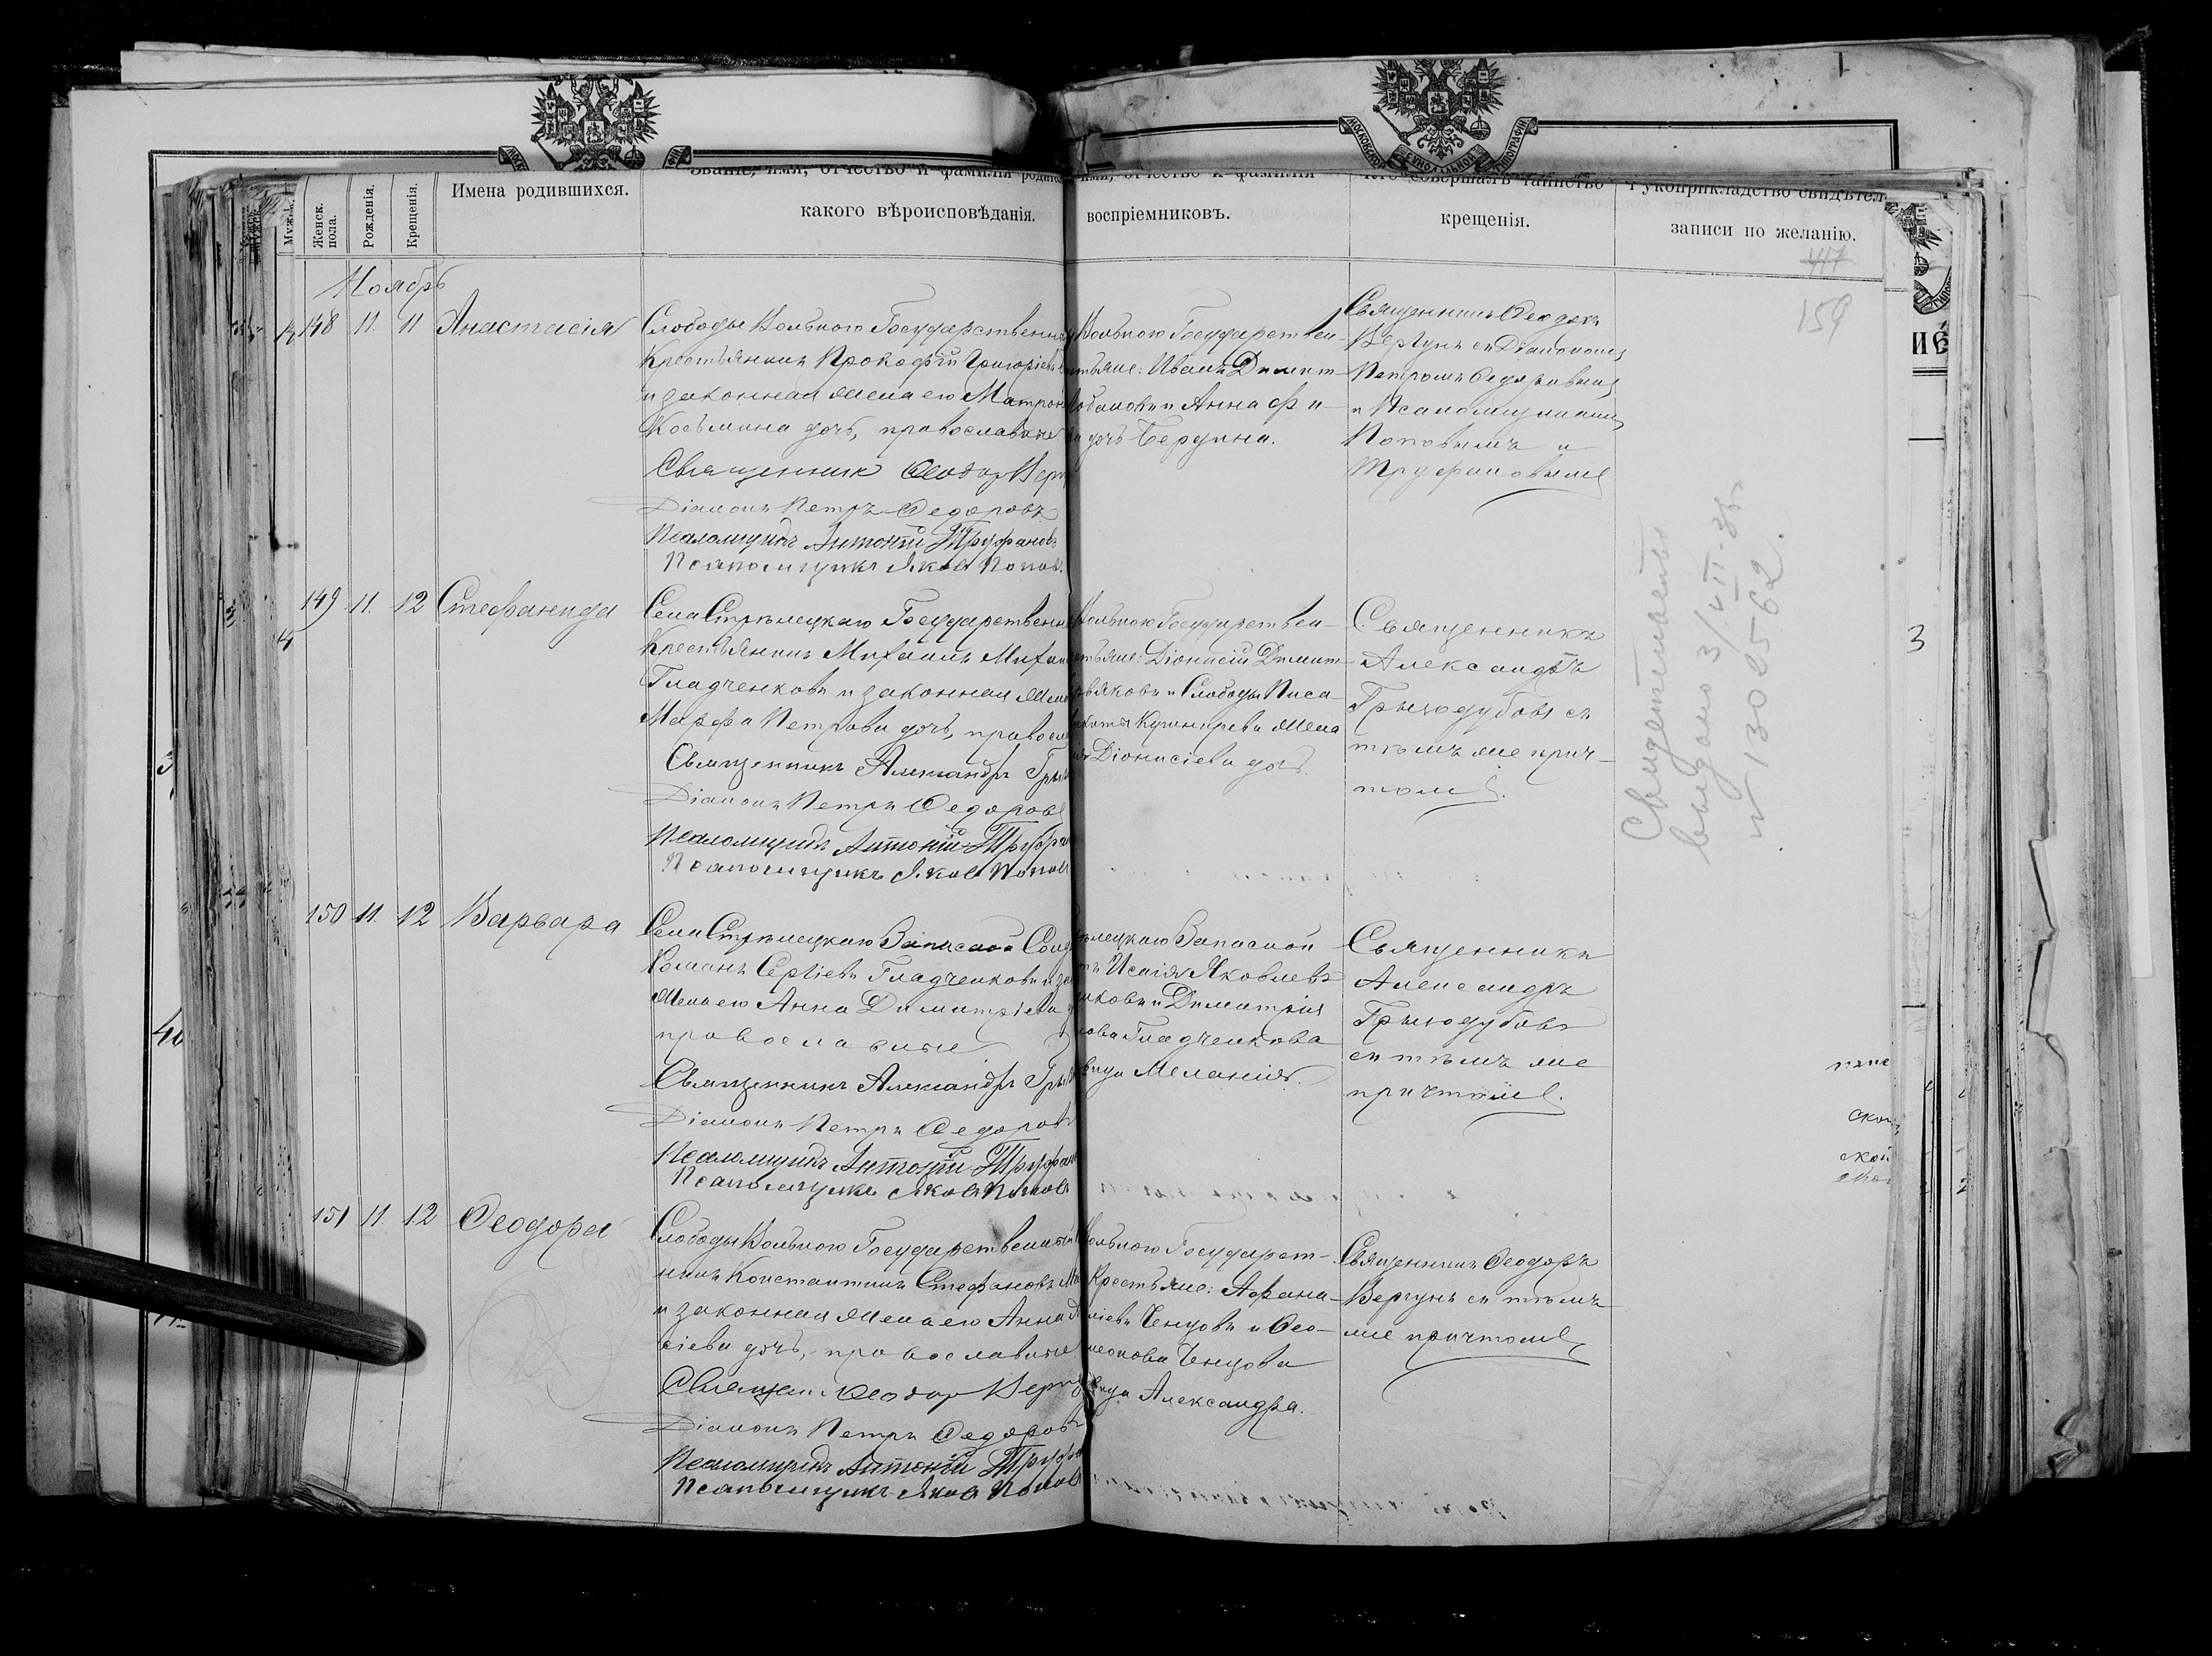 Званіе, имя, отчество и фамилія
какого вѣроисповѣданія.
Имена родившихся.
Мужск.
Женск. пола.
Рожденія.
Крещенія.
имя, отчество и фамилія
воспріемниковъ.
Кто совершалъ таинство
крещенія.
Рукоприкладство свидѣтел
записи по желанію.
МОСКОВСКОЙ СѴНОДАЛЬНОЙ ТИПОГРАФІИ
417
159
Ноябрь
148 11. 11 Анастасія
Слободы Вольною Государственный
Крестьянинъ Прокофій Григоріевъ
и законная жена его Матрона
Косьмина дочь, православные
Священник Феодор Верг
Діаконъ Петръ Федоровъ
Псаломщикъ Антоній Труфановъ
Псаломщикъ Яков Попов.
Вольною Государствен-
стьяне: Иванъ Димит-
Лобановъ и Анна Фи-
ва дочь Бердина.
Священникъ Феодоръ
Вергунъ съ Діакономъ
Петромъ Федоровымъ
и Псаломщиками
Поповымъ и
Труфановымъ
149 11. 12 Стефанида
Села Стрѣлецкаго Государственный
Крестьянинъ Михаилъ Михаи
Гладченковъ и законная жена
Марфа Петрова дочь, правосл
Священникъ Александръ Гры
Діаконъ Петръ Федоровъ
Псаломщикъ Антоній Труфан
Псаломщикъ Яков Попов
Вольною Государствен-
стьяне: Діонисій Димит-
рьяковъ и Слободы Писа-
Кушнирева жена
Діонисіева дочь.
Священникъ
Александръ
Грызодубовъ съ
тѣмъ же прич-
томъ.
Свидетельство
выдано 3/VII-36 г
№ 1309562.
150 11. 12 Варвара
Села Стрѣлецкаго Запасной Солд
Романъ Сергіевъ Гладченковъ и за
жена его Анна Димитріева д
православные
Священникъ Александръ Гры
Діаконъ Петръ Федоровъ
Псаломщикъ Антоній Труфан
Псаломщикъ Яков Попов
ѣлецкаго Запасной
тъ Исаія Яковлевъ
нковъ и Димитрія
нова Гладченкова
вица Меланія.
Священникъ
Александръ
Грызодубовъ
съ тѣмъ же
причтомъ.
151 11. 12 Феодора
Слободы Вольною Государственный
нинъ Константинъ Стефановъ
и законная жена его Анна
сіева дочь, православные
Священ. Феодор Верг
Діаконъ Петръ Федоровъ
Псаломщикъ Антоній Труфа
Псаломщикъ Яков Попов
Вольною Государст-
Крестьяне: Афана-
сіевъ Ченцовъ и Фео-
Ченцова
вица Александра.
Священникъ Феодоръ
Вергунъ съ тѣмъ
же причтомъ
3